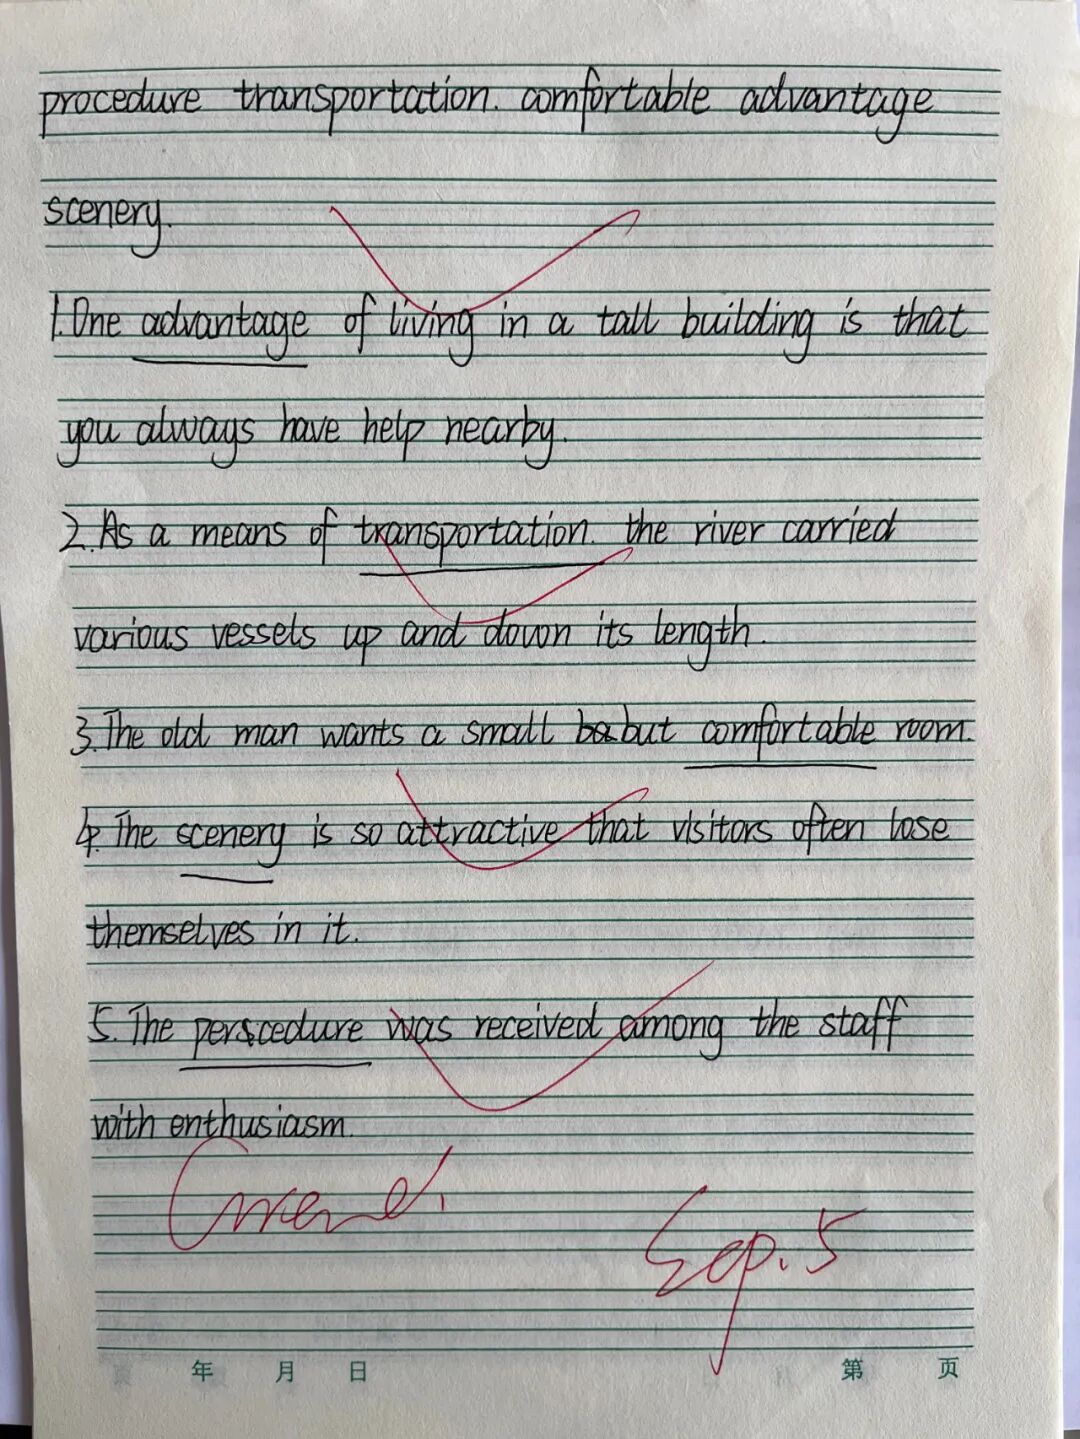 procedure transportation. comfortable advantage
scenery.
1. One advantage of living in a tall building is that
you always have help nearby.
2. As a means of transportation. the river carried
various vessels up and down its length.
3. The old man wants a small but comfortable room.
4. The scenery is so attractive that visitors often lose
themselves in it.
5. The perscedure was received among the staff
with enthusiasm.
Sep. 5
年 月 日 第 页